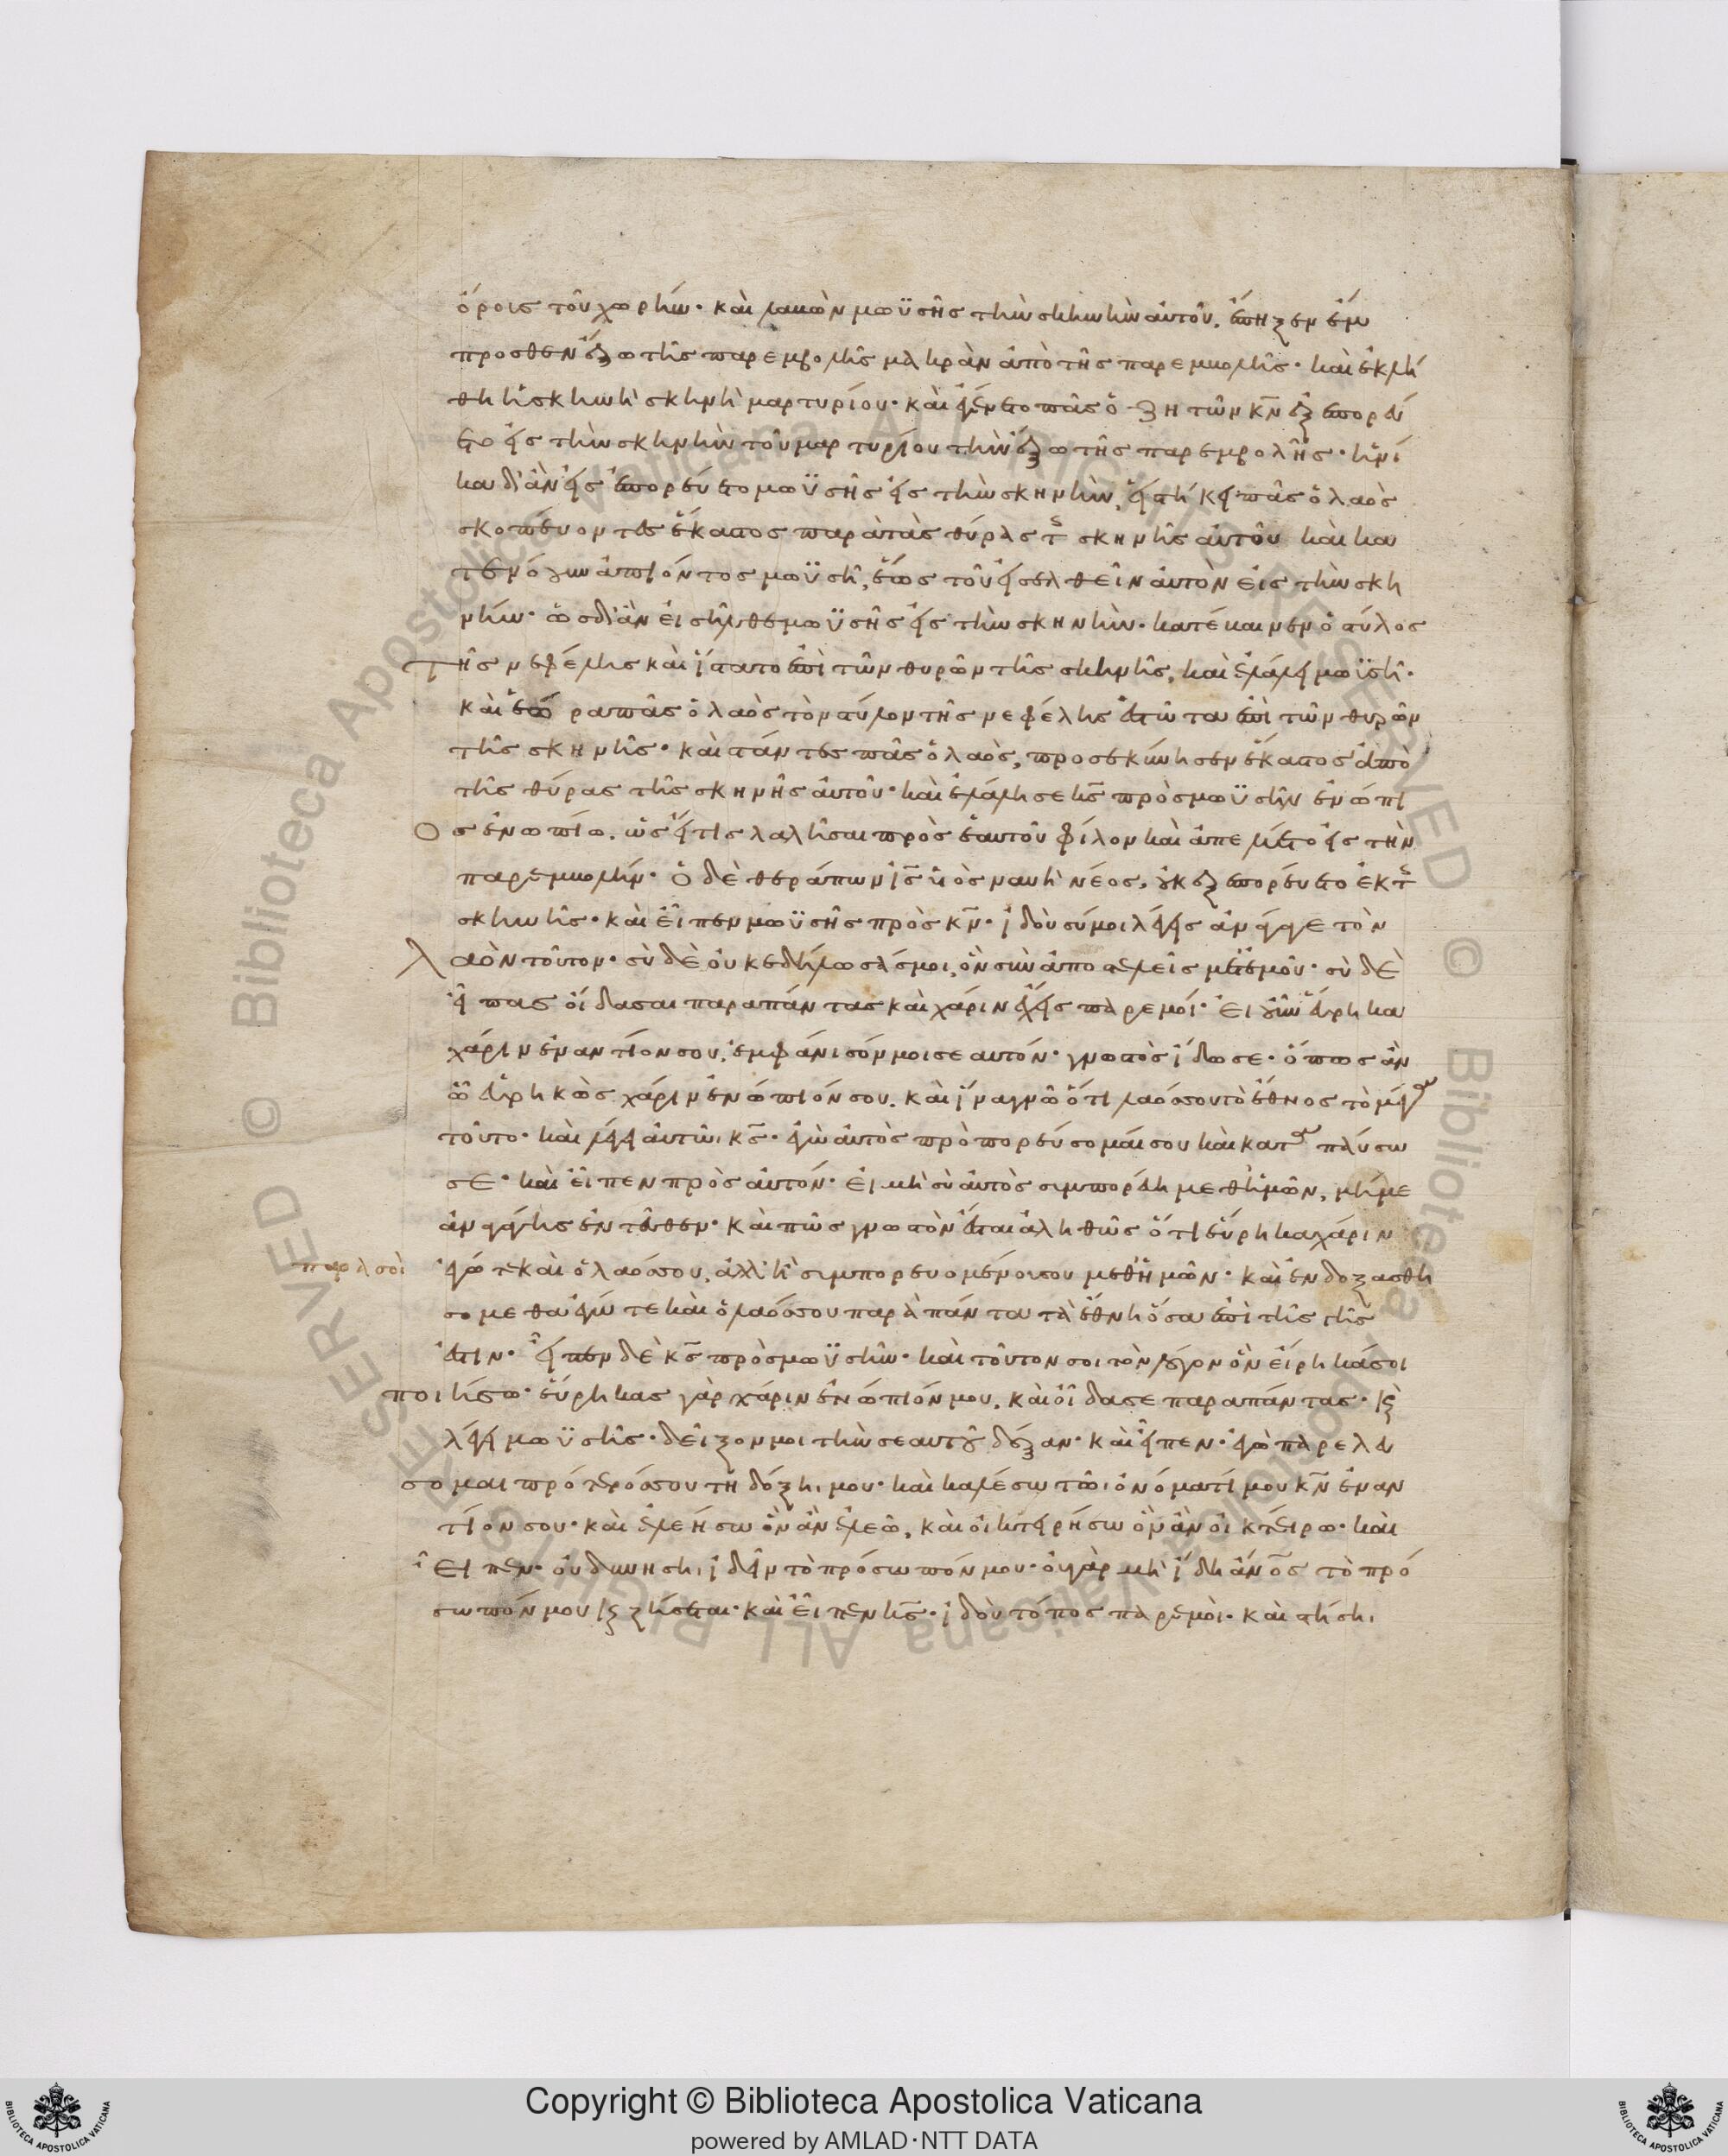 ὄρους τοῦ χωρήβ· καὶ λαβὼν μωϋσῆς τὴν σκηνὴν αὐτοῦ, ἔπηξεν ἔμ
προσθεν ἔξω τῆς παρεμβολῆς μακρὰν ἀπὸ τῆς παρεμβολῆς· καὶ ἐκλή
θη ἡ σκηνὴ σκηνὴ μαρτυρίου· καὶ ἐγένετο πᾶς ὁ ζητῶν κν̄ ἐξεπορεύ
ετο εἰς τὴν σκηνὴν τοῦ μαρτυρίου τὴν ἔξω τῆς παρεμβολῆς· ἡνί
κα δ' ἂν εἰσεπορεύετο μωϋσῆς εἰς τὴν σκηνὴν, εἱστήκει πᾶς ὁ λαὸς
σκοπεύοντες ἕκαστος παρὰ τὰς θύρας τ σκηνῆς αὐτοῦ καὶ κα
τενόουν ἀπιόντος μωϋσῆ, ἕως τοῦ εἰσελθεῖν αὐτὸν εἰς τὴν σκη
νήν· ὡς δ' ἂν εἰσῆλθε μωϋσῆς εἰς τὴν σκηνὴν· κατέβαινεν ὁ στύλος
τῆς νεφέλης καὶ ἵστατο ἐπὶ τῶν θυρῶν τῆς σκηνῆς, καὶ ἐλάλει μωϋσῆ·
καὶ ἑώρα πᾶς ὁ λαὸς τὸν στύλον τῆς νεφέλης ἑστῶτα ἐπὶ τῶν θυρῶν
τῆς σκηνῆς· καὶ στάντες πᾶς ὁ λαὸς, προσεκύνησεν ἕκαστος ἀπὸ
τῆς θύρας τῆς σκηνῆς αὐτοῦ· καὶ ἐλάλησε κς̄ πρὸς μωϋσῆν ἐνώπι
ος ἐνωπίω. ὡς εἴ τις λαλῆσαι πρὸς ἑαυτοῦ φίλον καὶ ἀπελύετο εἰς τὴν
παρεμβολήν· ὁ δὲ θεράπων ις̄ υἱὸς ναυὴ νέος, οὐκ ἐξεπορεύετο ἐκ τ
σκηνῆς· καὶ εἶπεν μωϋσῆς πρὸς κν̄· ἰδοὺ σύ μοι λέγεις ἀνάγαγε τὸν
λαὸν τοῦτον· σὺ δὲ οὐκ ἐδήλωσάς μοι, ὃν συναποστελεῖς μετ' ἐμοῦ· σὺ δὲ
εἶπας οἶδά σαι παρὰ πάντας καὶ χάριν ἔχεις παρ' ἐμοί· εἰ οὖν εὕρηκα
χάριν ἐναντίον σου, ἐμφάνισόν μοι σεαυτόν· γνωστὸς ἴδω σε· ὅπως ἂν
ὦ εὑρηκὼς χάριν ἐνώπιόν σου. καὶ ἵνα γνῶ ὅτι λαός σου τὸ ἔθνος τὸ μέγα
τοῦτο· καὶ λέγει αὐτῶι κς̄· ἐγὼ αὐτὸς προπορεύσομαί σου καὶ καταπαύσω
σε· καὶ εἶπεν πρὸς αὐτόν· εἰ μὴ σὺ αὐτὸς συμπορεύη μεθ' ἡμῶν, μή με
ἀναγάγης ἐντεῦθεν· καὶ πῶς γνωστὸν ἔσται ἀληθῶς ὅτι εὕρηκα χάριν
παρὰ σοὶ ἐγώ τε καὶ ὁ λαός σου, ἀλλ' ἢ συμπορευομένου σου μεθ' ἡμῶν· καὶ ἐνδοξασθη
σόμεθα ἐγώ τε καὶ ὁ λαός σου παρὰ πάντα τὰ ἔθνη ὅσα ἐπὶ τῆς γῆς
ἐστιν· εἶπεν δὲ κς̄ πρὸς μωϋσῆν· καὶ τοῦτον σοι τὸν λόγον ὃν εἴρηκάς οι
ποιήσω· εὕρηκας γὰρ χάριν ἐνώπιόν μου, καὶ οἶδά σε παρὰ πάντας· κ
λέγει μωϋσῆς· δεῖξον μοι τὴν σεαυτοῦ δόξαν· καὶ εἶπεν· ἐγὼ παρελεύ
σομαι πρότερός σου τῆ δόξηι μου· καὶ καλέσω τῶι ὀνόματί μου κν̄ ἐναν
τίον σου· καὶ ἐλεήσω ὃν ἂν ἐλεῶ, καὶ οἰκτειρήσω ὃν ἂν οἰκτείρω· καὶ
εἶπεν· οὐ δυνήσηι ἰδεῖν τὸ πρόσωπόν μου· οὐ γὰρ μὴ ἴδη ἄνο̄ς τὸ πρό
σωπόν μου κ ζήσεται· καὶ εἶπεν κς̄· ἰδοὺ τόπος παρ' ἐμοὶ· καὶ στήσηι
Copyright © Biblioteca Apostolica Vaticana
powered by AMLAD·NTT DATA